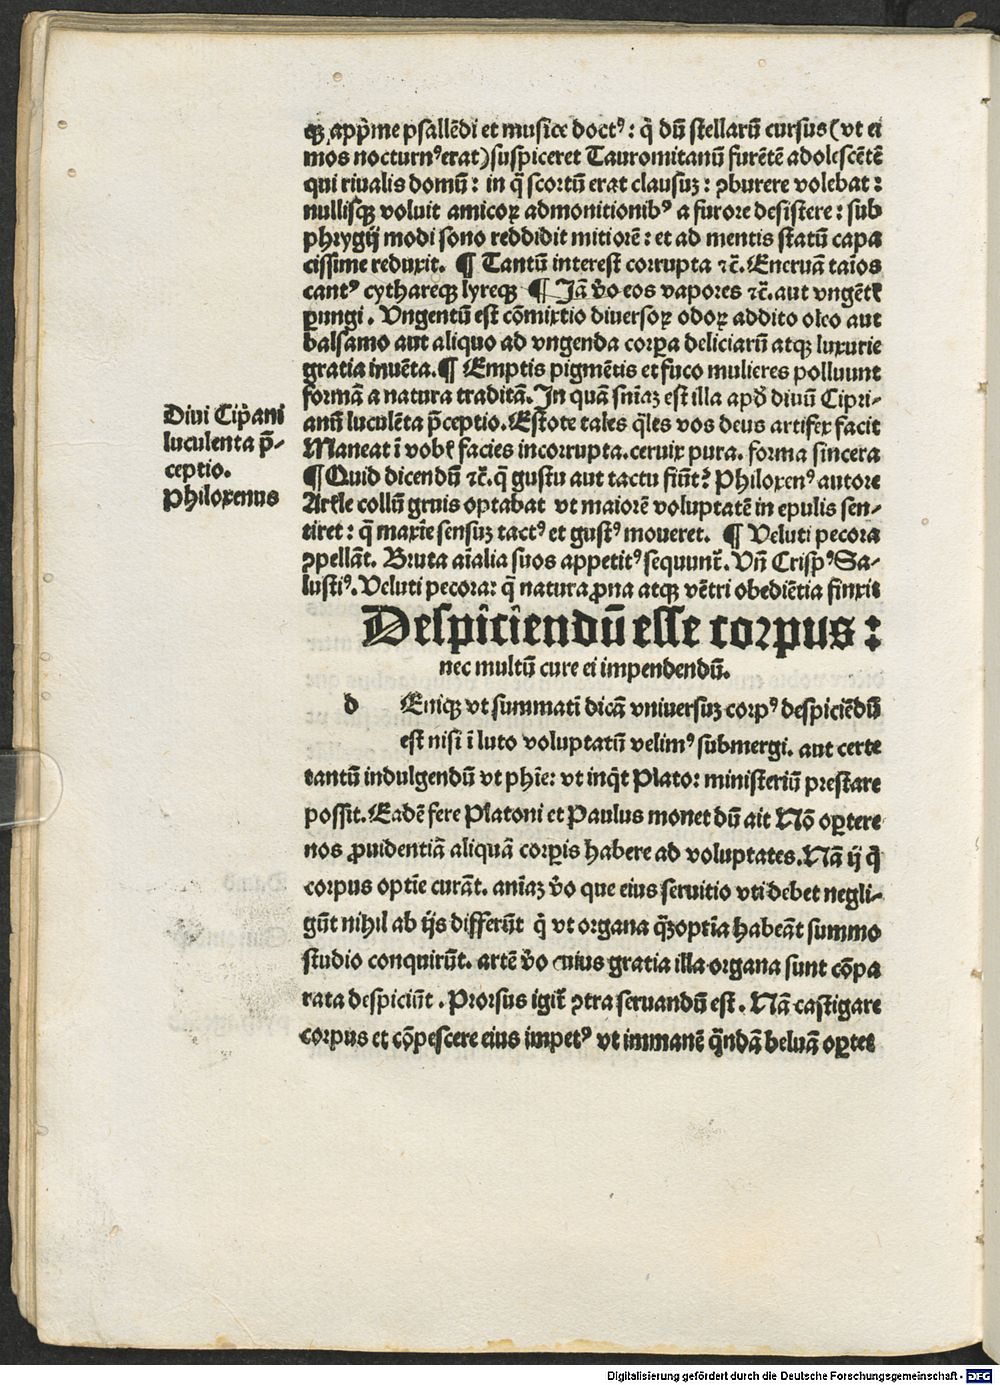 qꝫ app̃me psallẽdi et musicæ doctꝰ: q̃ dũ stellarũ cursus (vt ei
mos nocturnꝰ erat) suspiceret Tauromitanũ furẽtẽ adolescẽtẽ
qui riualis domũ: in q̃ scortũ erat clausuz: ꝯburere volebat:
nullisqꝫ voluit amicoꝝ admonitionibꝰ a furore desistere: sub
phrygij modi sono reddidit mitiorẽ: et ad mentis statũ capa
cissime reduxit. ¶ Tantũ interest corrupta ⁊c̃. Eneruãt aĩos
cantꝰ cythareqꝫ lyreqꝫ ¶ Jã ṽo eos vapores ⁊c̃. aut vngẽtꝭ
ꝑungi. Vngentũ est cõmixtio diuersoꝝ odoꝝ addito oleo aut
balsamo aut aliquo ad vngenda corꝑa deliciarũ atqꝫ luxurie
gratia inuẽta. ¶ Emptis pigmẽtis et fuco mulieres polluunt
formã a natura traditã. In quã sñiaz est illa apď diuũ Cipri-
anũ luculẽta p̃ceptio. Estote tales q̃les vos deus artifex facit
Maneat ĩ vobꝭ facies incorrupta. ceruix pura. forma sincera
¶ Quid dicendũ ⁊c̃. q̃ gustu aut tactu fiũt? Philoxenꝰ autore
Arꝭtle collũ gruis optabat vt maiorẽ voluptatẽ in epulis sen-
tiret: q̃ maxĩe sensuz tactꝰ et gustꝰ moueret. ¶ Veluti pecora
ꝯpellãt. Bruta aĩalia suos appetitꝰ sequunt̃. Vñ Crispꝰ Sa-
lustiꝰ. Veluti pecora: q̃ natura ꝓna atqꝫ vẽtri obediẽtia finxit
Despiciendũ esse corpus:
nec multũ cure ei impendendũ.
d Eniqꝫ vt summatĩ dicã vniuersuz corpꝰ despiciẽdũ
est nisi ĩ luto voluptatũ velimꝰ submergi. aut certe
tantũ indulgendũ vt phĩe: vt inq̃t Plato: ministeriũ prestare
possit. Eadẽ fere Platoni et Paulus monet dũ ait Nõ oꝑtere
nos ꝓuidentiã aliquã corꝑis habere ad voluptates. Nã ij q̃
corpus optĩe curãt. anĩaz ṽo que eius seruitio vti debet negli-
gũt nihil ab ijs differũt q̃ vt organa q̃ꝫ optĩa habeãt summo
studio conquirũt. artẽ ṽo cuius gratia illa organa sunt cõpa
rata despiciũt. Prorsus igit̃ ꝯtra seruandũ est. Nã castigare
corpus et cõpescere eius impetꝰ vt immanẽ q̃ndã beluã oꝑtet
Diui Cip̃ani
luculenta p̃-
ceptio.
Philoxenus
Digitalisierung gefördert durch die Deutsche Forschungsgemeinschaft - DFG